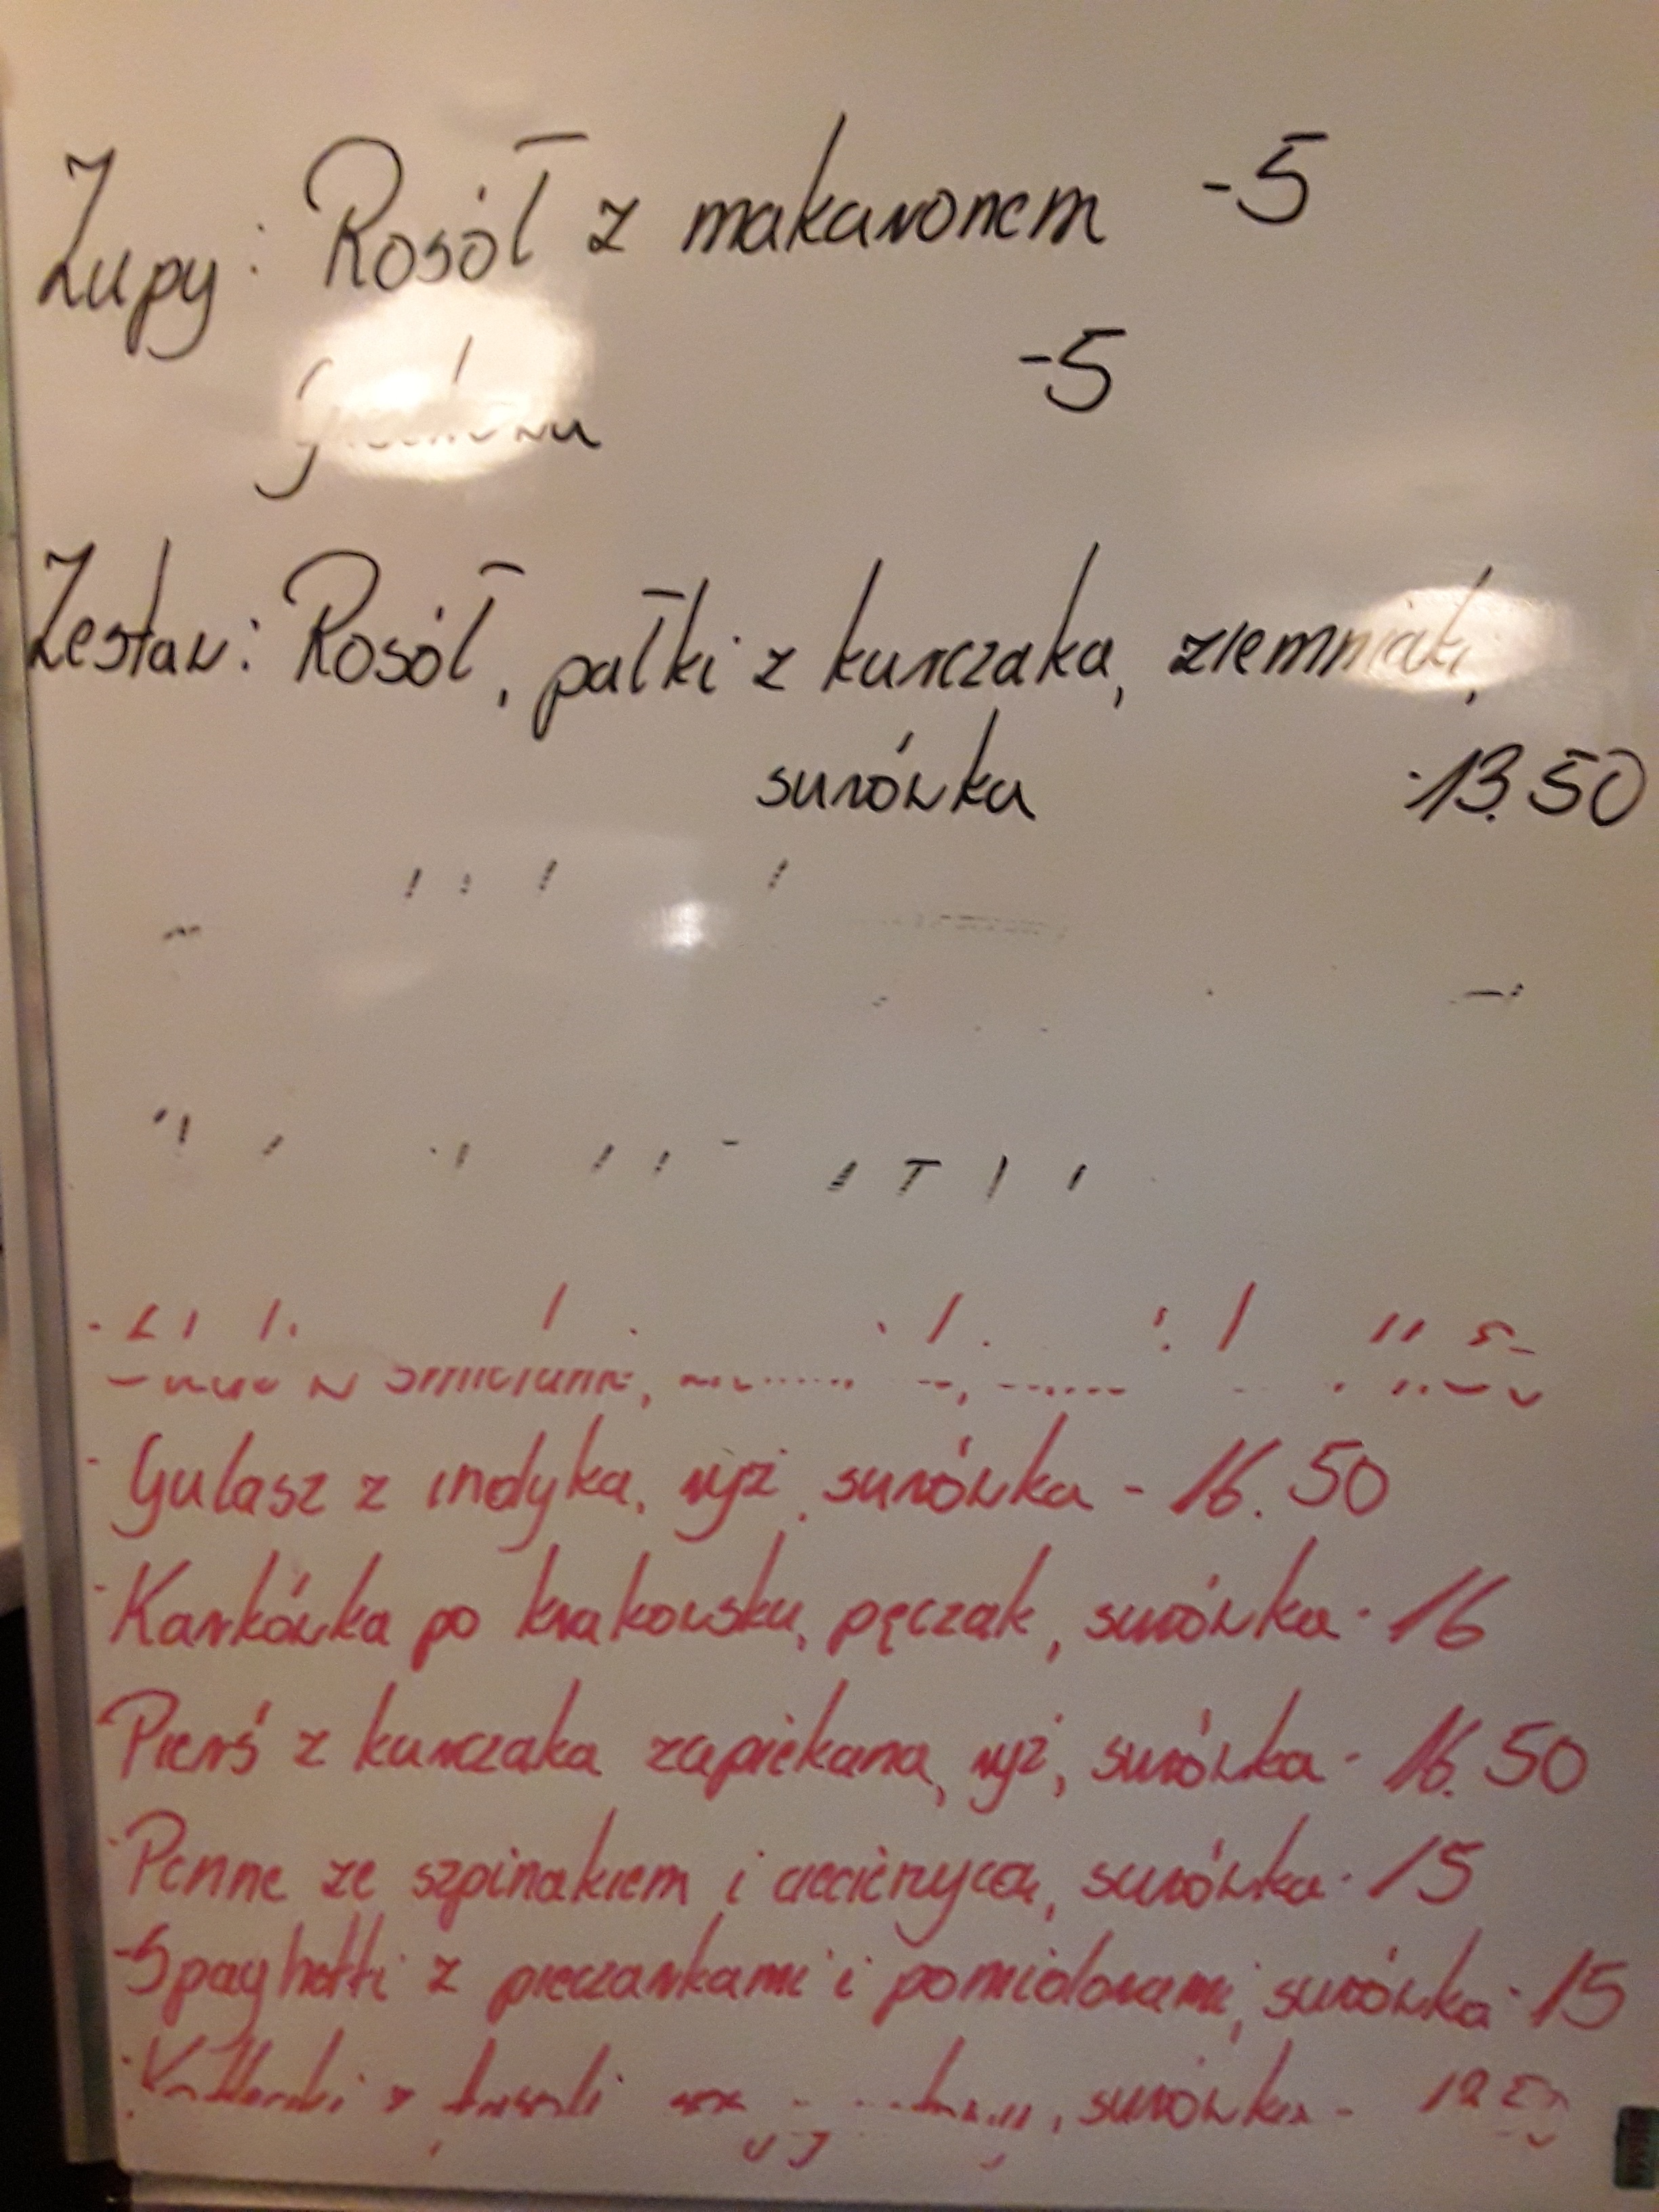 Zupy: Rosół z makaronem -5
-5
Zestaw: Rosół, pałki z kurczaka, ziemniaki,
surówka -13.50
w śmietanie,
- Gulasz z indyka, ryż, surówka - 16.50
- Karkówka po krakowsku, pęczak, surówka - 16
- Pierś z kurczaka zapiekana, ryż, surówka - 16.50
- Penne ze szpinakiem i ciecierzycą, surówka - 15
- Spaghetti z pieczarkami i pomidorami, surówka - 15
- z surówka -